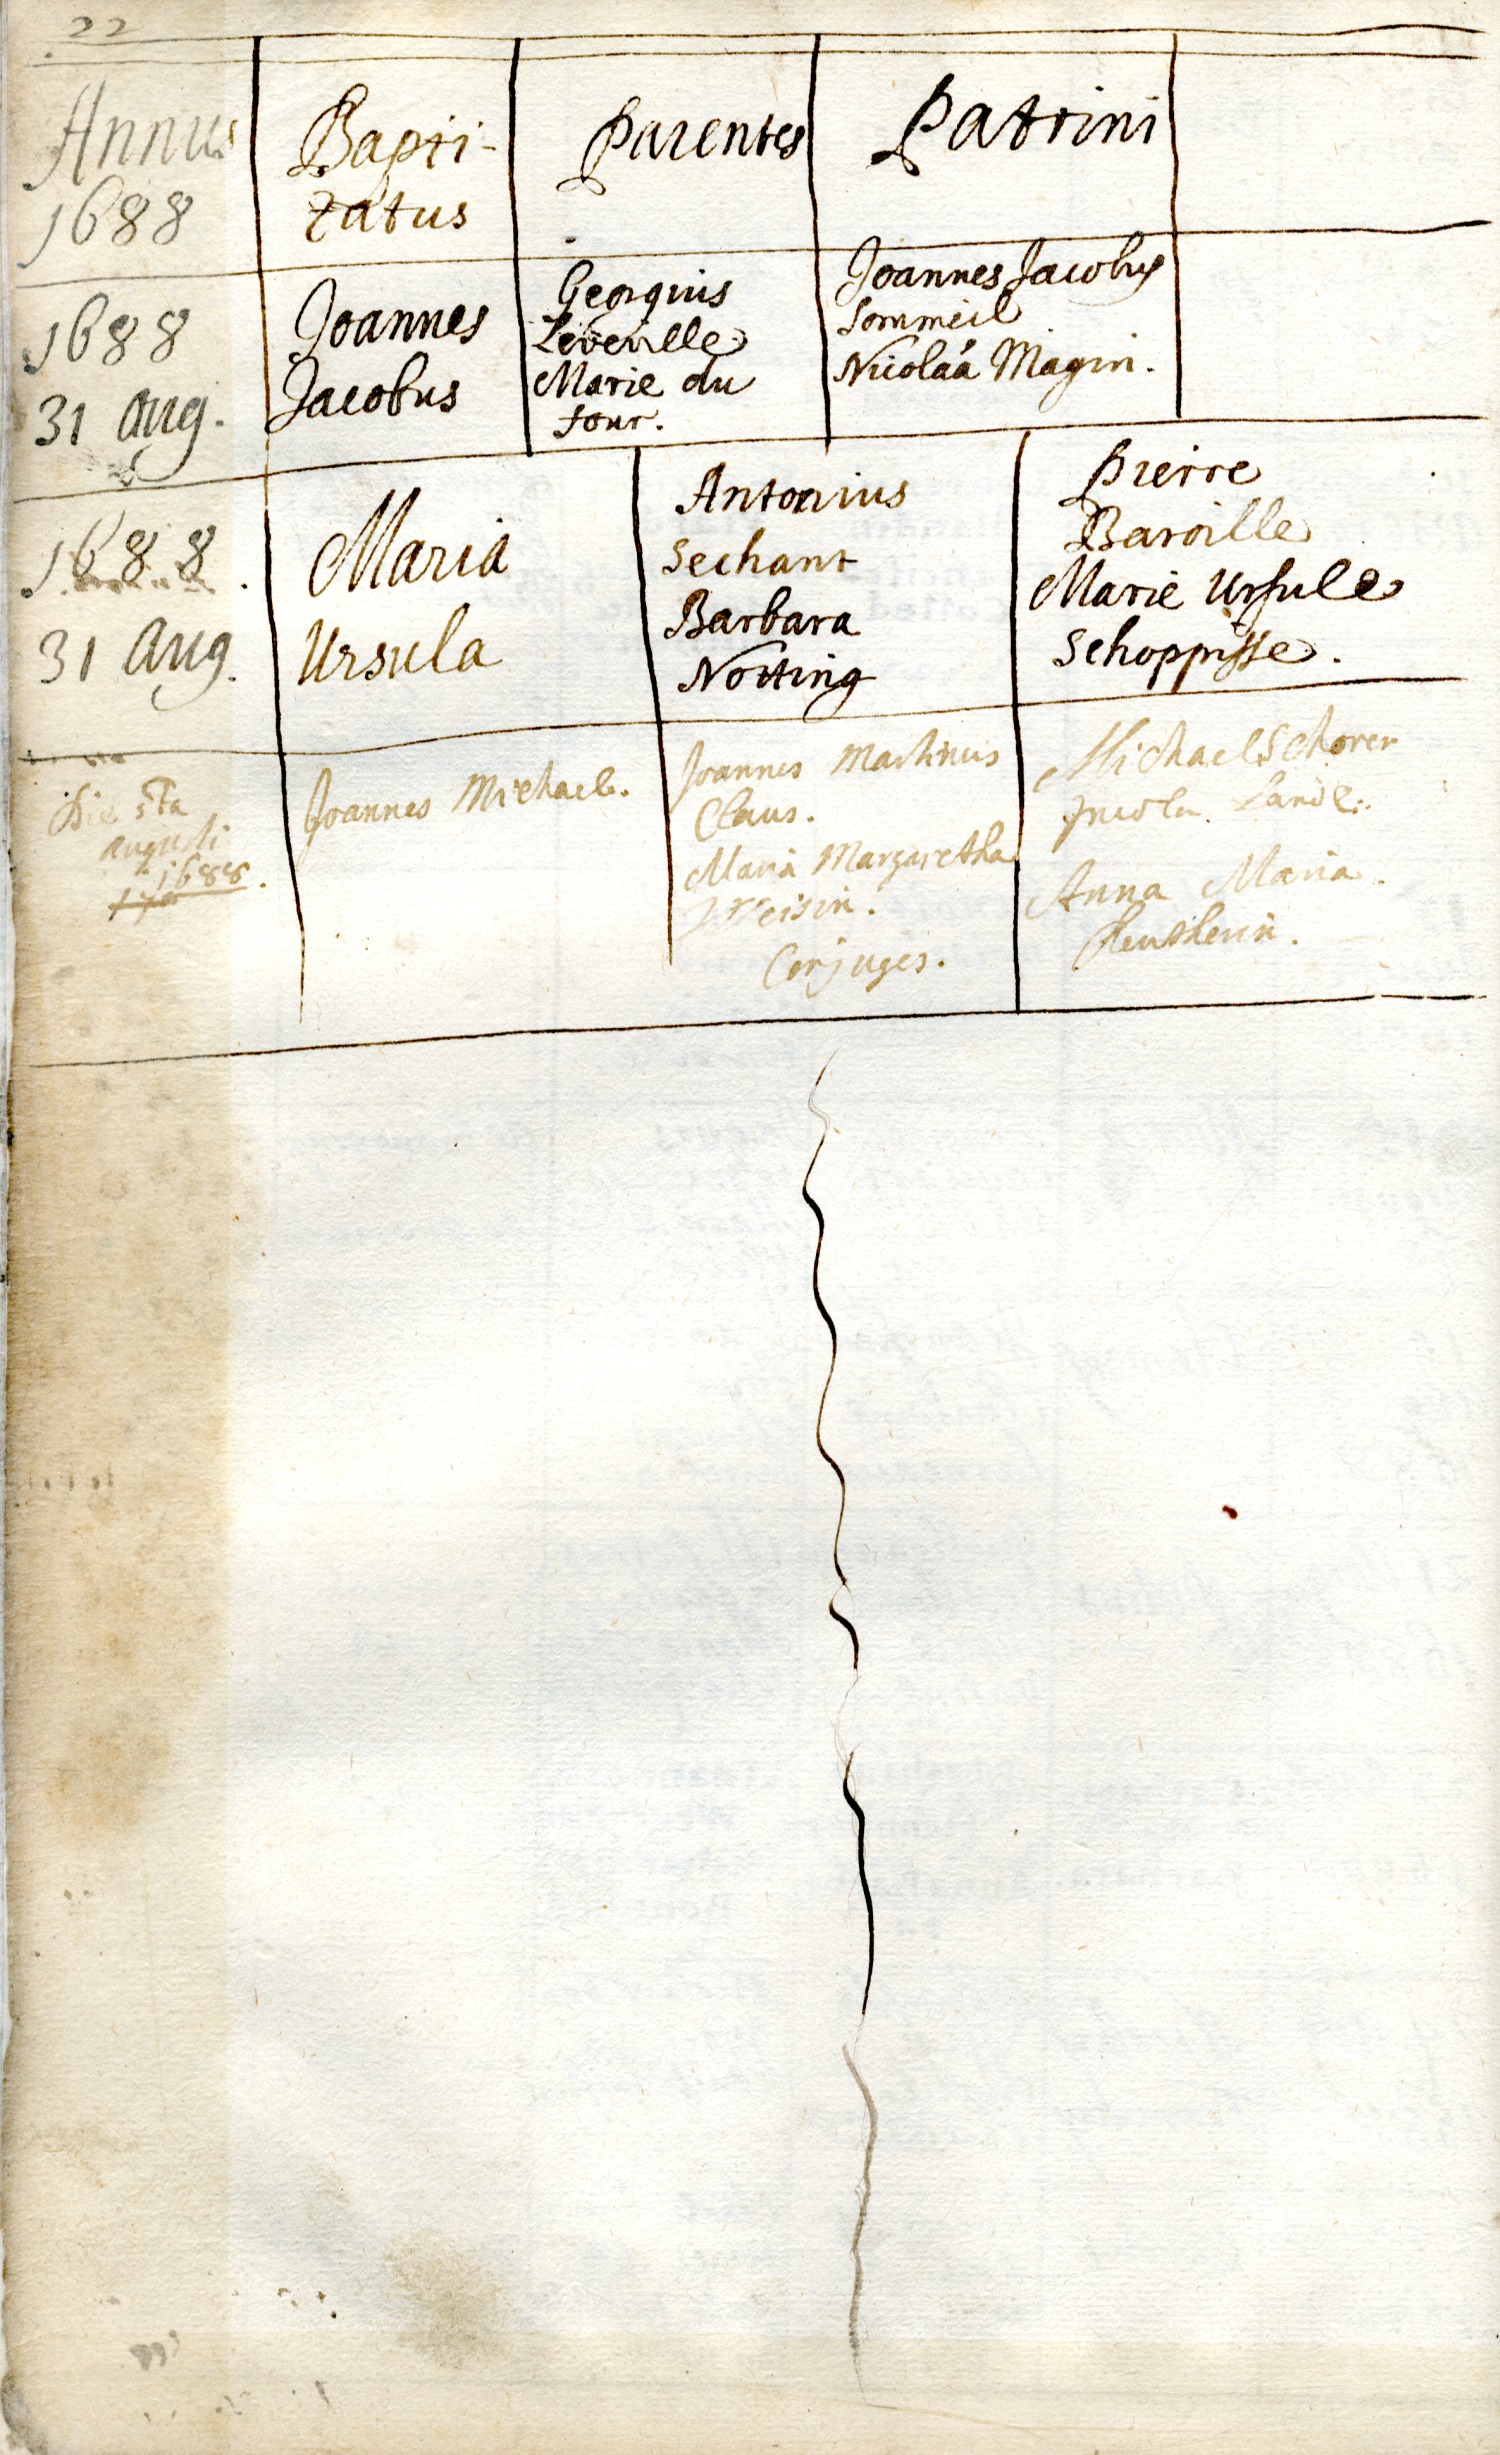 22
Annus
1688
Bapti-
zatus
Parentes
Patrini
1688
31 Aug.
Joannes
Jacobus
Georgius
Leveille
Marie du
four.
Joannes Jacobus
Sommeil
Nicolaä Magin.
1688.
31 Aug.
Maria
Ursula
Antonius
Sechant
Barbara
Notting
Pierre
Baroille
Marie Ursule
Schoppisse.
Die 5ta
Augusti
1688.
Joannes Michael.
Joannes Martinus
Claus.
Maria Margaretha
Weisin.
Conjuges.
Michael Schorer
Incola Land:
Anna Maria.